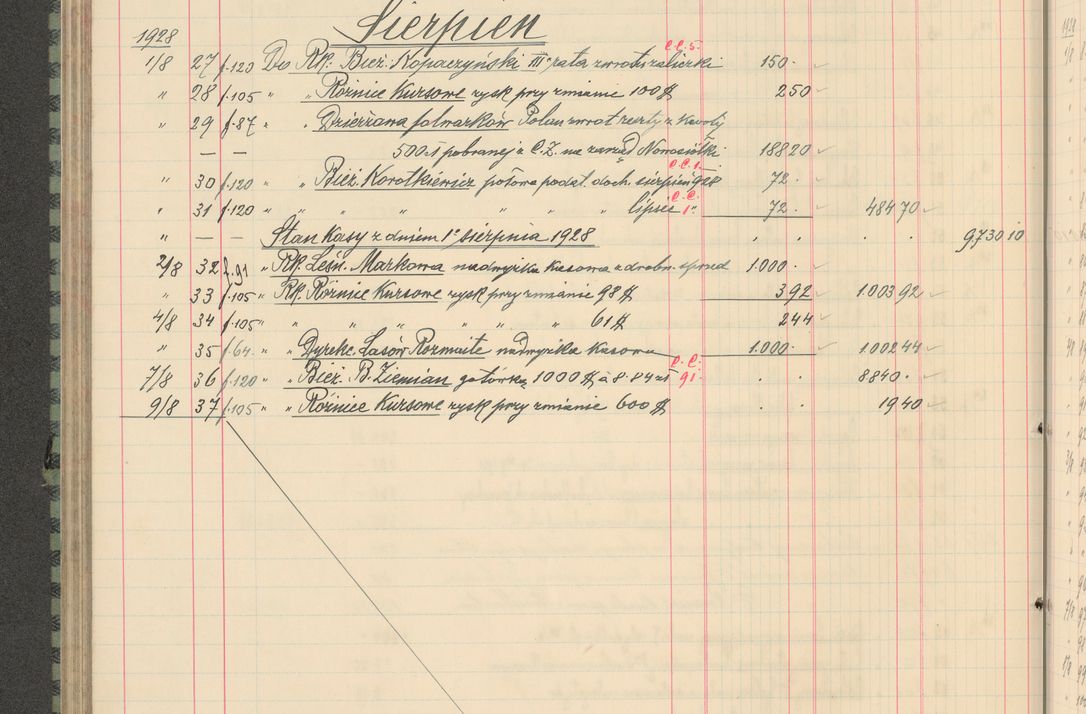 Sierpień
1928
1/8 27 f.120 Do Rk. Bież. Kopaczyński IIIa rata zwrotu zaliczki C.C. 5. 150 ·
" 28 f.105 " " Różnice Kursowe zysk przy zmianie 100 $ 2 50
" 29 f.87 " " Dzierżawa folwarków Polan zwrot reszty z kwoty
— — 500 zł pobranej z C.Z. na zarząd Nowosiółki 188 20
" 30 f.120 " " Bież. Korotkiewicz połowa podat. doch. sierpień 928 C.C. 1. 72 ·
" 31 f.120 " " " " " " lipiec C.C. 1" 72 · 484 70
" — — Stan Kasy z dniem 1o sierpnia 1928 · · · · 9.730 10
2/8 32 f.91 " Rk. Leśn. Markowa nadwyżka kasowa z drobn. sprzed 1.000 ·
" 33 f.105 " Rk. Różnice Kursowe zysk przy zmianie 98 $ 3 92 1.003 92
4/8 34 f.105 " " " " " " " 61 $ 2 44
" 35 f.64. " " Dyrekc. Lasów Rozmaite nadwyżka kasowa 1.000 · 1.002 44
7/8 36 f.120 " " Bież. B. Ziemian gotówką 1000 $ à 8.84 zł C.C. 91. · · 8840 ·
9/8 37 f.105 " " Różnice Kursowe zysk przy zmianie 600 $ · · 19 40